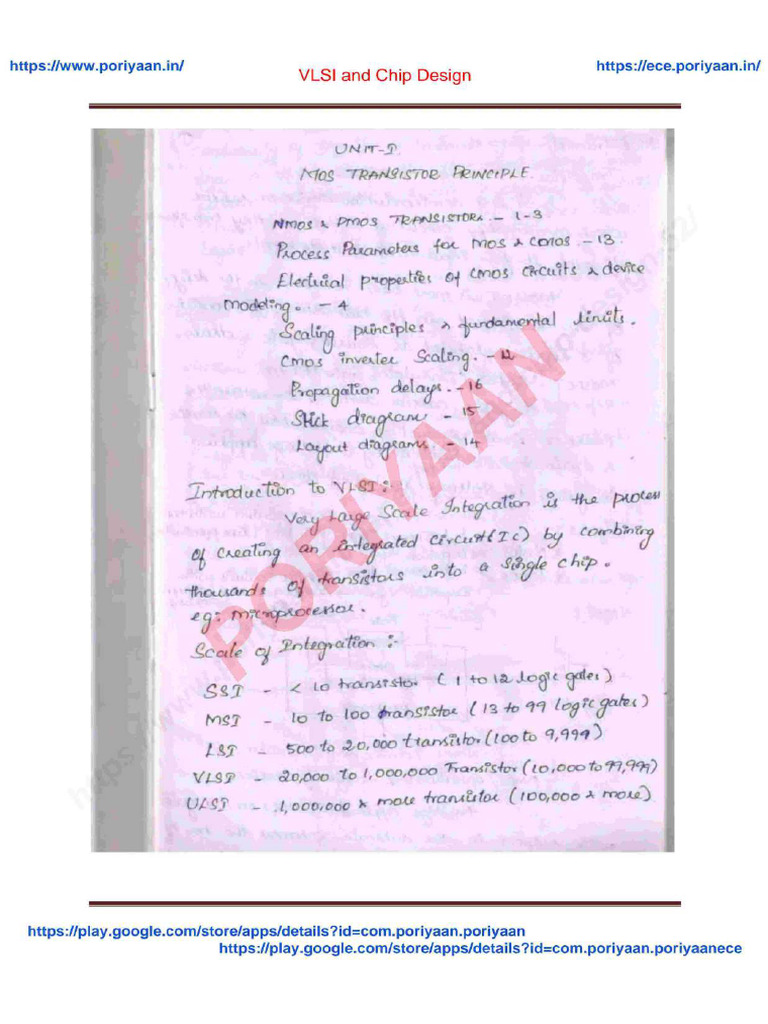 https://www.poriyaan.in/
VLSI and Chip Design
https://ece.poriyaan.in/
UNIT-I
MOS TRANSISTOR PRINCIPLE.
NMOS & PMOS TRANSISTORS - 1-3
Process Parameters for MOS & CMOS. - 13.
Electrical properties of CMOS circuits & device
modeling. - 4
Scaling principles & fundamental limits.
CMOS inverter Scaling. - 12
Propagation delays. - 16
Stick diagram - 15
Layout diagrams. - 14
Introduction to VLSI:-
Very Large Scale Integration is the process
of creating an integrated circuit (Ic) by combining
thousands of transistors into a single chip.
eg: microprocessor.
Scale of Integration :-
SSI - < 10 transistor (1 to 12 logic gates)
MSI - 10 to 100 transistor (13 to 99 logic gates)
LSI - 500 to 20,000 transistor (100 to 9,999)
VLSI - 20,000 to 1,000,000 Transistor (10,000 to 99,999)
ULSI - 1,000,000 & more transistor (100,000 & more)
PORIYAAN
https://play.google.com/store/apps/details?id=com.poriyaan.poriyaan
https://play.google.com/store/apps/details?id=com.poriyaan.poriyaanece